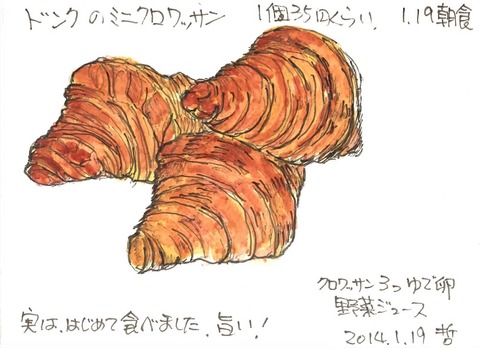 ドンクのミニクロワッサン 1個35円くらい. 1.19朝食
クロワッサン3つゆで卵
野菜ジュース
実は、はじめて食べました、旨い!
2014.1.19 哲